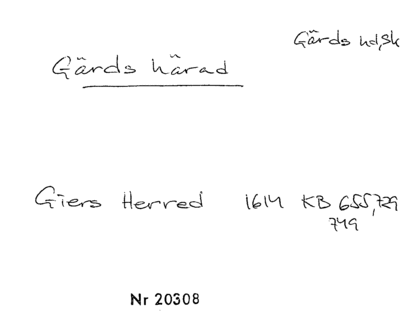 Gärds hd, Sk
Gärds härad
Giers Herred 1614 KB 655, 729
749
Nr 20308